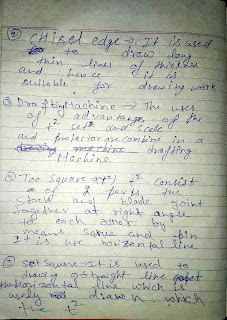 ② Chisel edge → It is used
to draw long
thin lines of thickness
and hence it is
suitable for drawing work
③ Drafting Machine → The uses
of advantages of the
t² set² and scale
and protractor combine in a
drafting
Machine
④ Tee Square → t² consist
of 2 parts the
Stock and blade joint
together at right angle
to each other by
means scrue and pin
It is use horizontal line
⑤ Set Square → It is used to
drawing straight line
horizontal line which is
drawn which
the t²